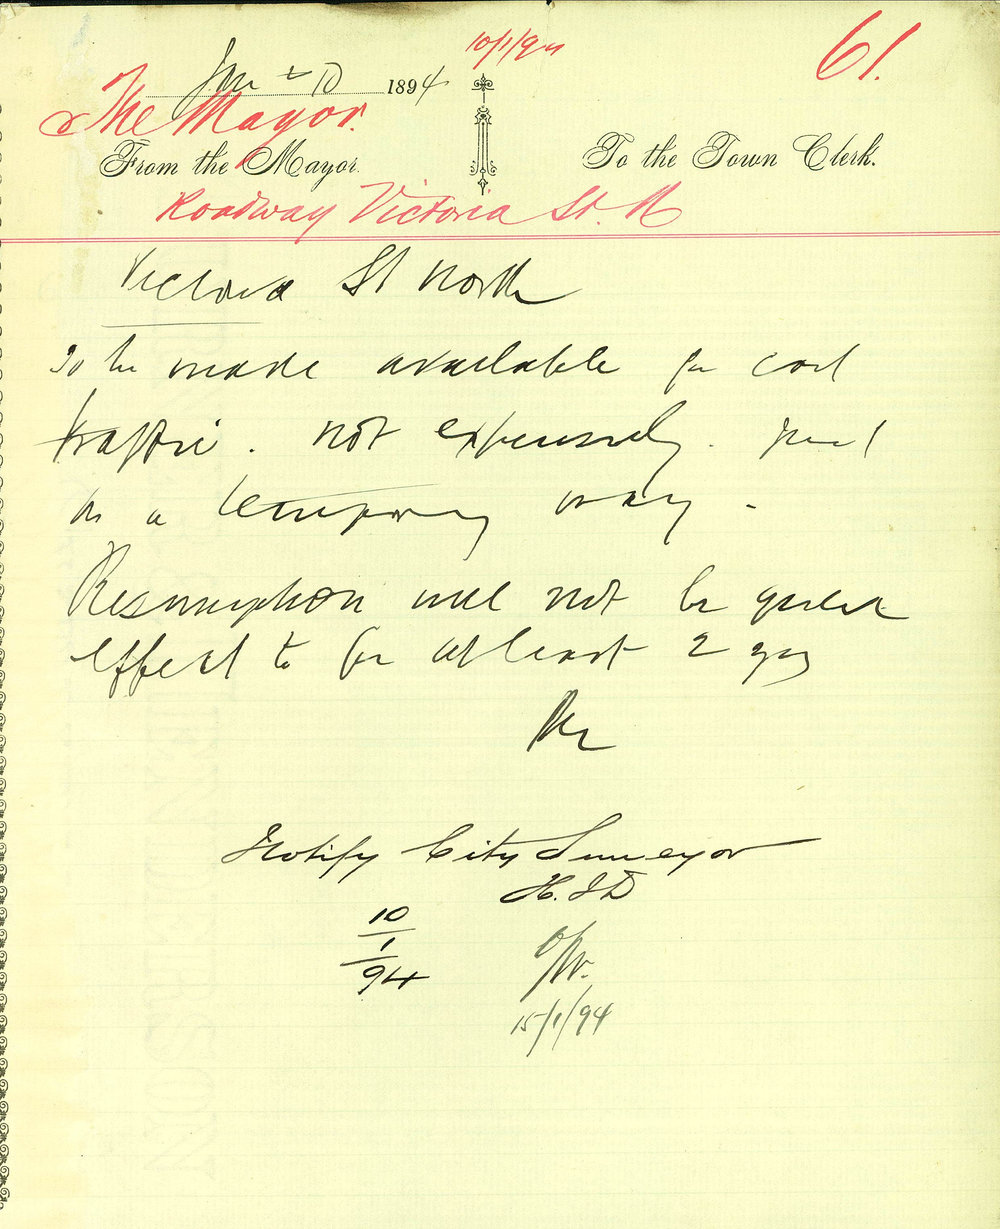 10/1/94
61.
Jany 10 1894
The Mayor.
From the Mayor. To the Town Clerk.
Roadway Victoria St. N
Victoria St North
To be made available for
traffic. not expensively. just
as a temporary way -
Resumption will not be given
effect to for at least 2 yrs
Notify City Surveyor
H.J.D
10
1
94
15/1/94